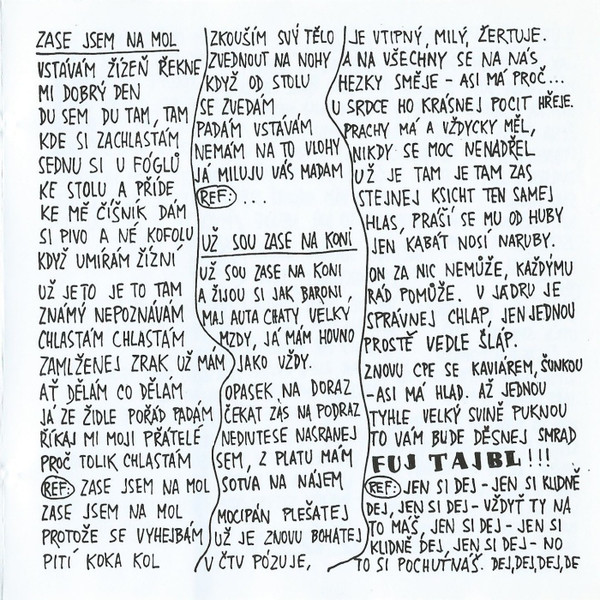 ZASE JSEM NA MOL
VSTÁVÁM ŽÍZEŇ ŘEKNE
MI DOBRÝ DEN
DU SEM DU TAM, TAM
KDE SI ZACHLASTÁM
SEDNU SI U FÓGLŮ
KE STOLU A PŘÍDE
KE MĚ ČÍŠNÍK DÁM
SI PIVO A NÉ KOFOLU
KDYŽ UMÍRÁM ŽÍZNÍ
UŽ JE TO JE TO TAM
ZNÁMÝ NEPOZNÁVÁM
CHLASTÁM CHLASTÁM
ZAMLŽENEJ ZRAK UŽ MÁM
AŤ DĚLÁM CO DĚLÁM
JÁ ZE ŽIDLE POŘÁD PADÁM
ŘÍKAJ MI MOJI PŘÁTELÉ
PROČ TOLIK CHLASTÁM
REF: ZASE JSEM NA MOL
ZASE JSEM NA MOL
PROTOŽE SE VYHEJBÁM
PITÍ KOKA KOL
ZKOUŠÍM SVÝ TĚLO
ZVEDNOUT NA NOHY
KDYŽ OD STOLU
SE ZVEDÁM
PADÁM VSTÁVÁM
NEMÁM NA TO VLOHY
JÁ MILUJU VÁS MADAM
REF: ...
UŽ SOU ZASE NA KONI
UŽ SOU ZASE NA KONI
A ŽIJOU SI JAK BARONI,
MAJ AUTA CHATY VELKY
MZDY, JÁ MÁM HOVNO
JAKO VŽDY.
OPASEK NA DORAZ
ČEKAT ZAS NA PODRAZ
NEDIVTESE NASRANEJ
SEM, Z PLATU MÁM
SOTVA NA NÁJEM
MOCIPÁN PLEŠATEJ
UŽ JE ZNOVU BOHATEJ
V ČTV PÓZUJE,
JE VTIPNÝ, MILÝ, ŽERTUJE.
A NA VŠECHNY SE NA NÁS
HEZKY SMĚJE - ASI MÁ PROČ...
U SRDCE HO KRÁSNEJ POCIT HŘEJE.
PRACHY MÁ A VŽDYCKY MĚL,
NIKDY SE MOC NENADŘEL
UŽ JE TAM JE TAM ZAS
STEJNEJ KSICHT TEN SAMEJ
HLAS, PRÁŠÍ SE MU OD HUBY
JEN KABÁT NOSÍ NARUBY.
ON ZA NIC NEMŮŽE, KAŽDÝMU
RÁD POMŮŽE. V JÁDRU JE
SPRÁVNEJ CHLAP, JEN JEDNOU
PROSTĚ VEDLE ŠLÁP.
ZNOVU CPE SE KAVIÁREM, ŠUNKOU
-ASI MÁ HLAD. AŽ JEDNOU
TYHLE VELKÝ SVINĚ PUKNOU
TO VÁM BUDE DĚSNEJ SMRAD
FUJ TAJBL!!!
REF: JEN SI DEJ - JEN SI KLIDNĚ
DEJ, JEN SI DEJ - VŽDYŤ TY NA
TO MÁŠ, JEN SI DEJ - JEN SI
KLIDNĚ DEJ, JEN SI DEJ - NO
TO SI POCHUTNÁŠ. DEJ, DEJ, DEJ, DE